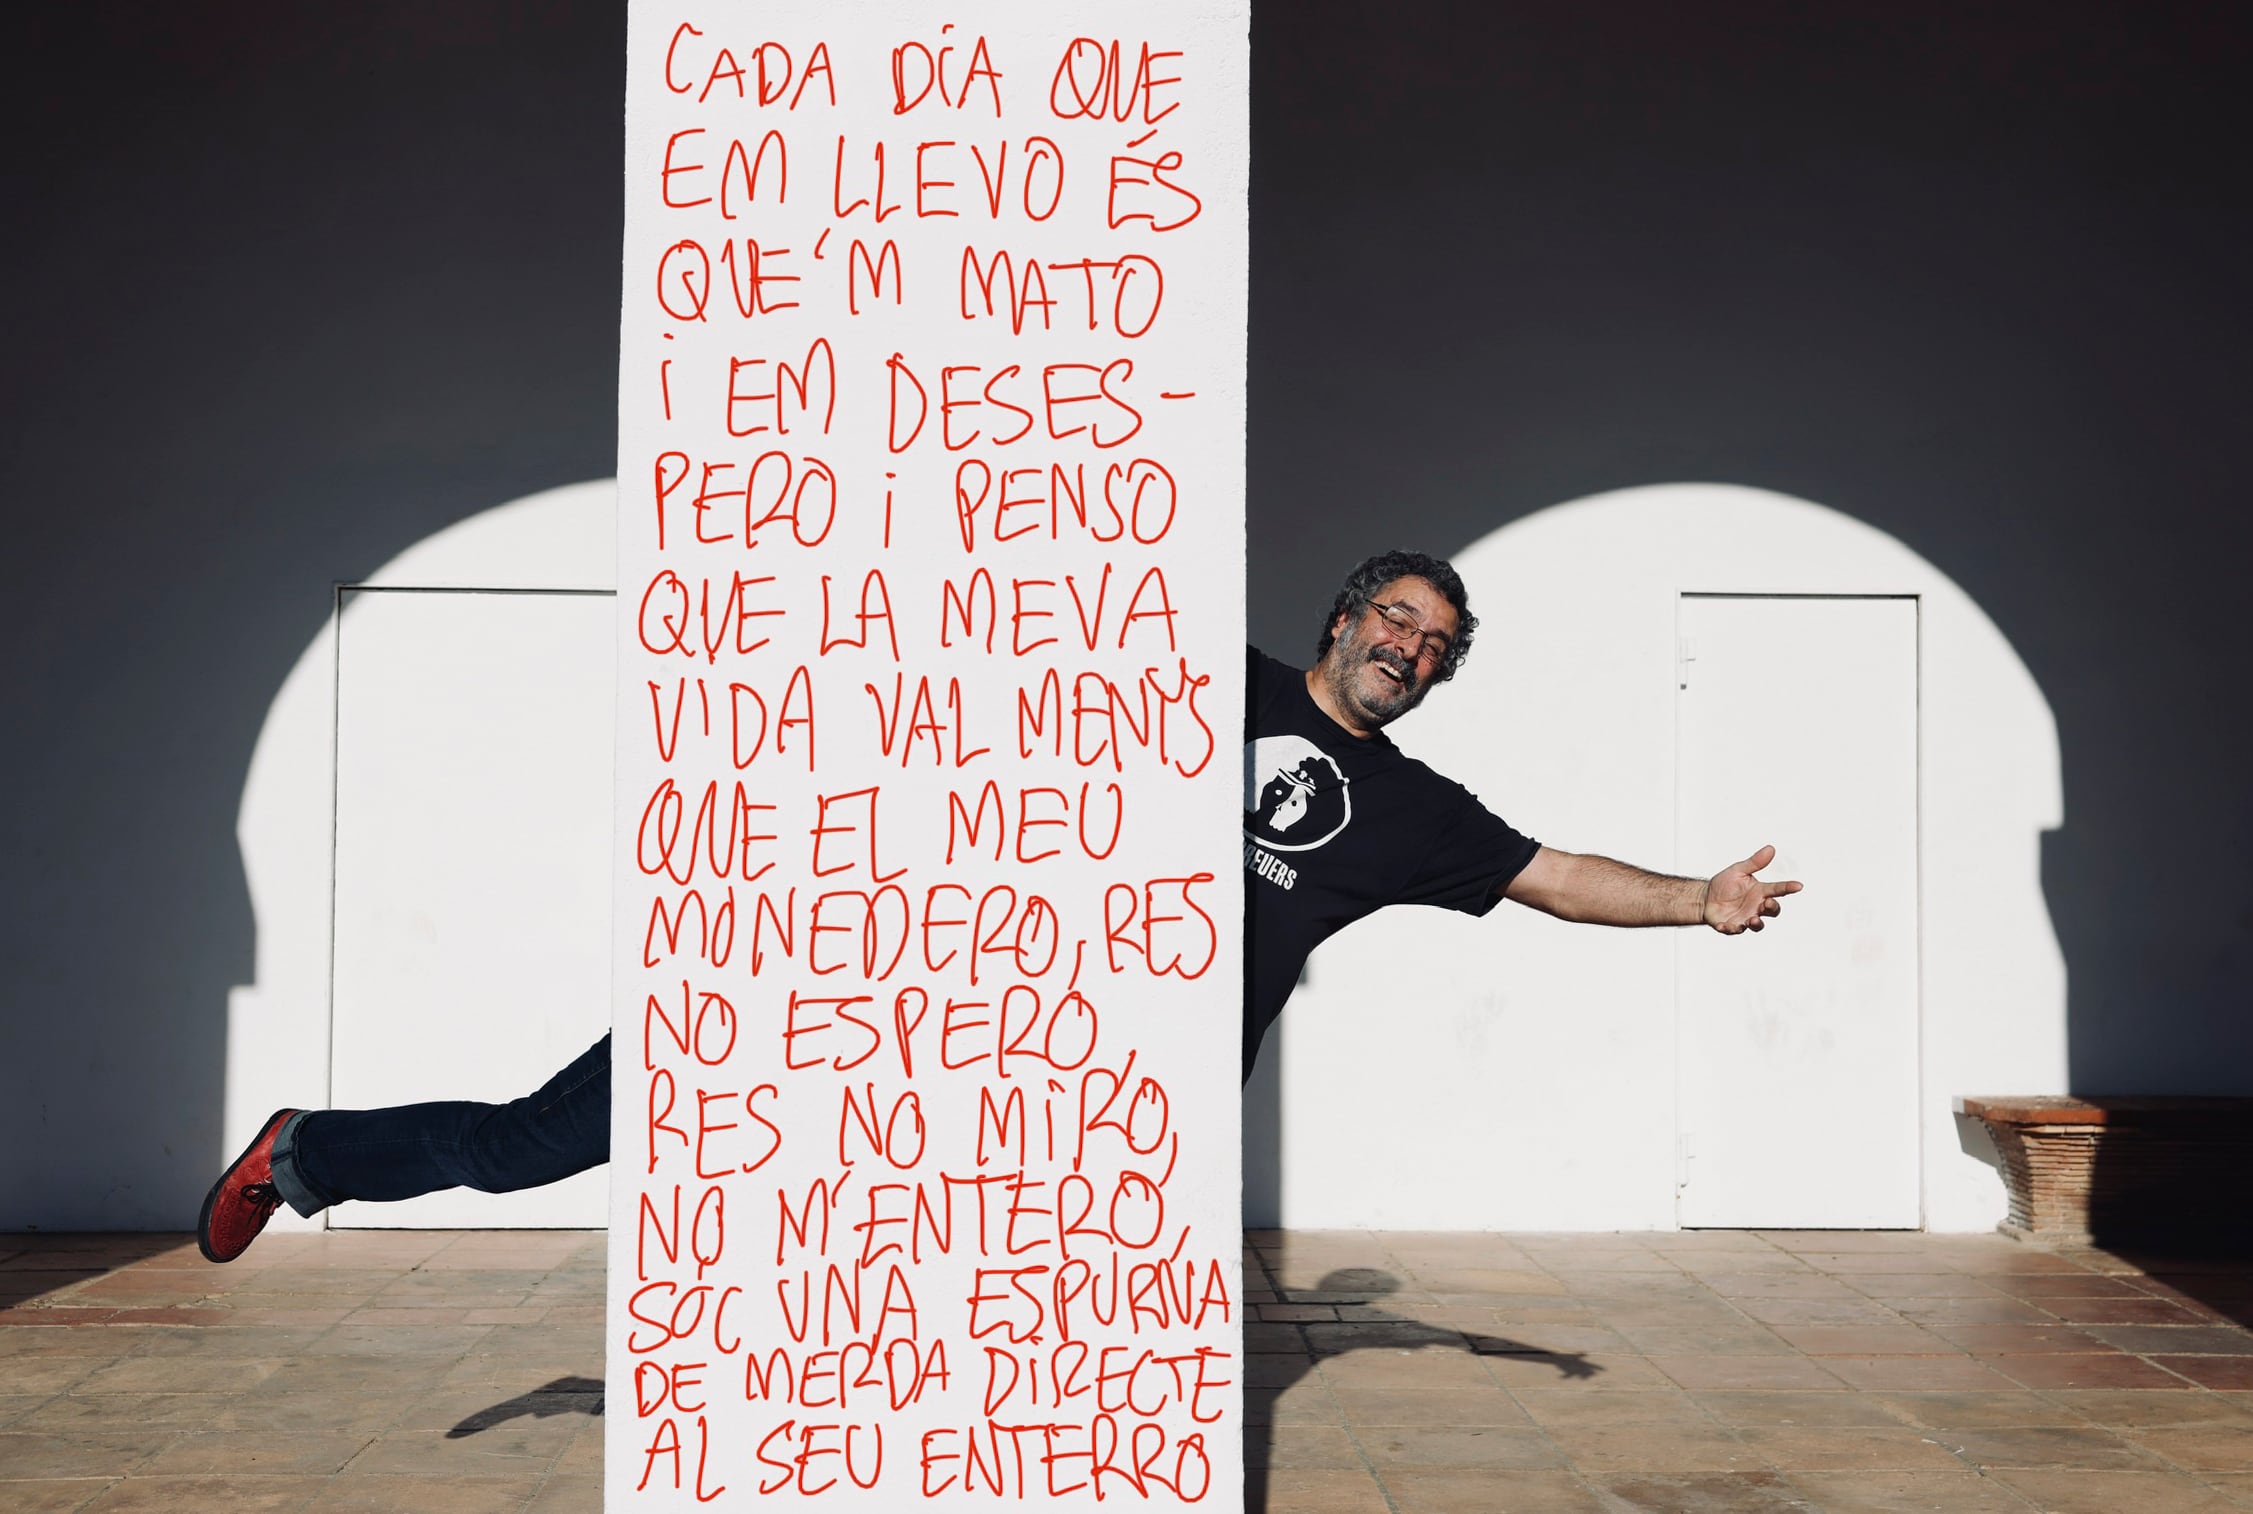 CADA DÍA QUE
EM LLEVO ÉS
QUE'M MATO
i EM DESES-
PERO i PENSO
QUE LA MEVA
VIDA VAL MENYS
QUE EL MEU
MONEDERO, RES
NO ESPERO,
RES NO MIRO,
NO M'ENTERO,
SÓC UNA ESPURNA
DE MERDA DIRECTE
AL SEU ENTERRO
REVERS